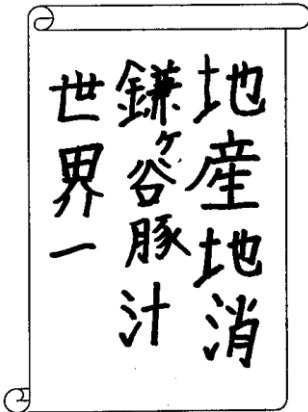 地産地消
鎌ヶ谷豚汁
世界一